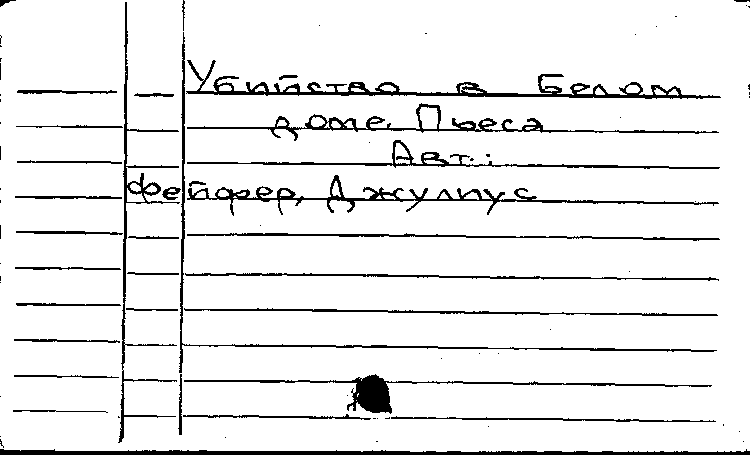 Убийство в Белом
доме. Пьеса
Авт.:
Фейфер, Джулиус